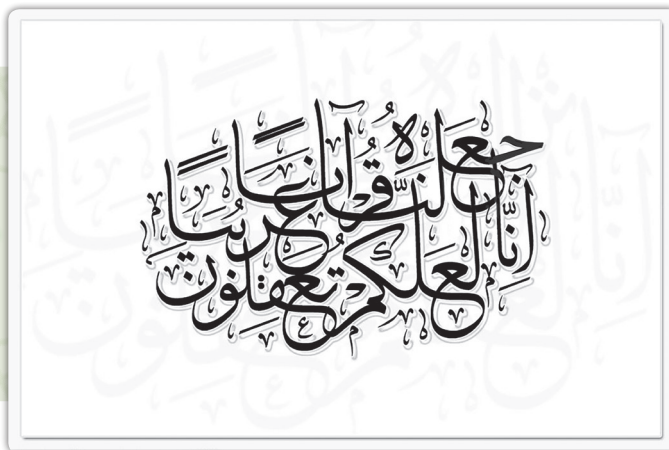 إِنَّا جَعَلْنَاهُ قُرْآنًا عَرَبِيًّا
لَعَلَّكُمْ تَعْقِلُونَ